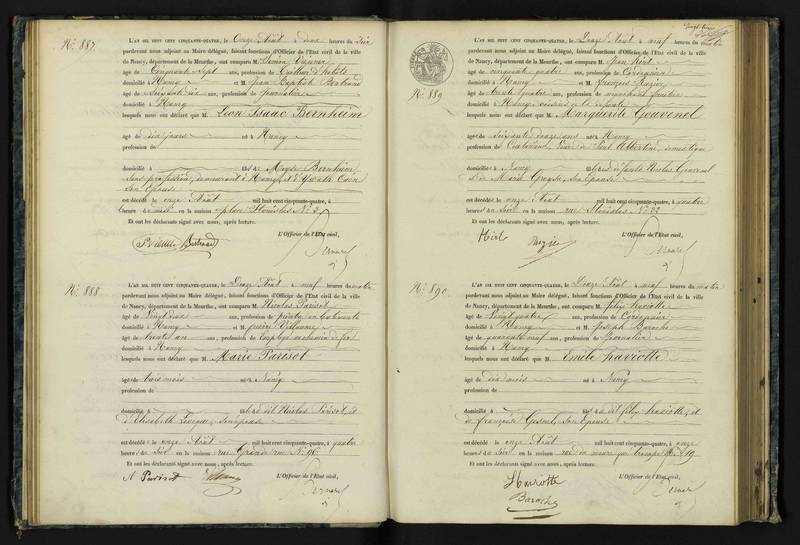 N.º 887.
L'AN MIL HUIT CENT CINQUANTE-QUATRE, le Onze Août à deux heures du Soir
pardevant nous adjoint au Maire délégué, faisant fonctions d'Officier de l'État civil de la ville
de Nancy, département de la Meurthe, ont comparu M.
âgé de Cinquante Sept ans, profession de
domicilié à Nancy et M. Jean Baptiste Bertrand
âgé de Soixante dix ans, profession de Journalier
domicilié à Nancy
lesquels nous ont déclaré que M. Léon Isaac Bernheim
âgé de dix jours né à Nancy
profession de
domicilié à fils de Moyse Bernheim
Sans profession, demeurant à Nancy, et d'
Son Epouse
est décédé le onze Août mil huit cent cinquante-quatre, à
heures du midi en la maison place Stanislas N.º 3
Et ont les déclarants signé avec nous, après lecture.
L'Officier de l'État civil,
Bertrand
N.º 888.
L'AN MIL HUIT CENT CINQUANTE-QUATRE, le Douze Août à neuf heures du matin
pardevant nous adjoint au Maire délégué, faisant fonctions d'Officier de l'État civil de la ville
de Nancy, département de la Meurthe, ont comparu M. Nicolas Parisot
âgé de Vingt six ans, profession de peintre en bâtiments
domicilié à Nancy et M. Villaume
âgé de trente un ans, profession de Employé au chemin de fer
domicilié à Nancy
lesquels nous ont déclaré que M. Marie Parisot
âgé de trois mois né à Nancy
profession de
domicilié à du dit Nicolas Parisot, et
d'Elisabeth Son épouse
est décédé le onze Août mil huit cent cinquante-quatre, à quatre
heures du Soir en la maison rue Grande rue N.º 96
Et ont les déclarants signé avec nous, après lecture.
L'Officier de l'État civil,
N Parisot
N.º 889
L'AN MIL HUIT CENT CINQUANTE-QUATRE, le Douze Août à neuf heures du matin
pardevant nous adjoint au Maire délégué, faisant fonctions d'Officier de l'État civil de la ville
de Nancy, département de la Meurthe, ont comparu M. Jean
âgé de cinquante quatre ans, profession de Cordonnier
domicilié à Nancy et M. François
âgé de trente quatre ans, profession de marchand fruitier
domicilié à Nancy, voisins de la défunte
lesquels nous ont déclaré que M. Marguerite Gouvenel
âgé de Soixante douze ans né à Nancy
profession de Veuve de Paul Albertini, domestique
domicilié à Nancy fille des défunts Nicolas Gouvenel
et de Marie Son épouse
est décédé le onze Août mil huit cent cinquante-quatre, à quatre
heures du Soir en la maison rue Stanislas N.º 22
Et ont les déclarants signé avec nous, après lecture.
L'Officier de l'État civil,
N.º 890.
L'AN MIL HUIT CENT CINQUANTE-QUATRE, le Douze Août à neuf heures du matin
pardevant nous adjoint au Maire délégué, faisant fonctions d'Officier de l'État civil de la ville
de Nancy, département de la Meurthe, ont comparu M. félix haviotte
âgé de Vingt quatre ans, profession de Cordonnier
domicilié à Nancy et M. Joseph Baroche
âgé de quarante neuf ans, profession de Journalier
domicilié à Nancy
lesquels nous ont déclaré que M. Emile haviotte
âgé de dix mois né à Nancy
profession de
domicilié à fils du dit félix haviotte, et
de françoise Son Epouse
est décédé le onze Août mil huit cent cinquante-quatre, à onze
heures du Soir en la maison
Et ont les déclarants signé avec nous, après lecture.
L'Officier de l'État civil,
Haviotte
Baroche